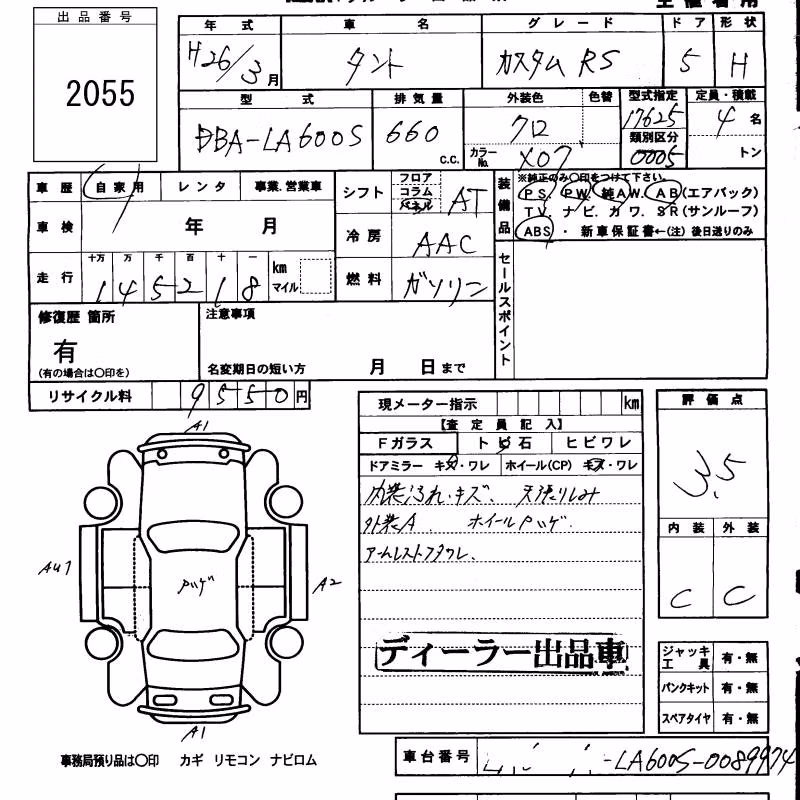 出品番号
2055
年式 車名 グレード ドア 形状
H26/3月 タント カスタム RS 5 H
型式 排気量 外装色 色替 型式指定 定員・積載
DBA-LA600S 660 c.c. クロ 17625 4名
カラーNo. X07 類別区分 0005 トン
車歴 自家用 レンタ 事業.営業車
車検 年 月
走行 十万 万 千 百 十 一
145218 km マイル
シフト フロア コラム パネル AT
冷房 AAC
燃料 ガソリン
装備品
※純正のみ〇印をつけて下さい。
PS. PW. 純AW. AB(エアバック)
TV. ナビ. カワ. SR(サンルーフ)
ABS ・ 新車保証書←(注) 後日送りのみ
セールスポイント
修復歴 箇所
有
(有の場合は〇印を)
注意事項
名変期日の短い方 月 日まで
リサイクル料 9550円
現メーター指示 km
【査定員記入】
Fガラス トビ石 ヒビワレ
ドアミラー キズ・ワレ ホイール(CP) キズ・ワレ
内装汚れ.キズ. 天張りしみ
外装A. ホイールハゲ.
アームレストフタワレ.
ディーラー出品車
評価点
3.5
内装 外装
C C
ジャッキ工具 有・無
パンクキット 有・無
スペアタイヤ 有・無
A1
AU1
ハゲ
A2
A1
事務局預り品は〇印 カギ リモコン ナビロム
車台番号 -LA600S-0089974